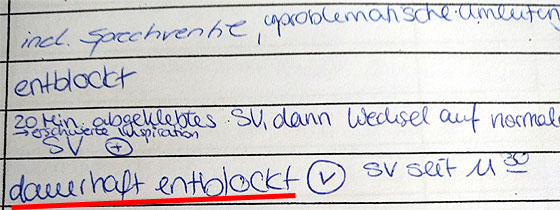 incl. Sprechventil, unproblematische Umleitung
entblockt
20 Min. abgeklebtes SV, dann Wechsel auf normale
→ erschwerte Inspiration
SV ⊕
dauerhaft entblockt ✓ SV seit 11³⁰